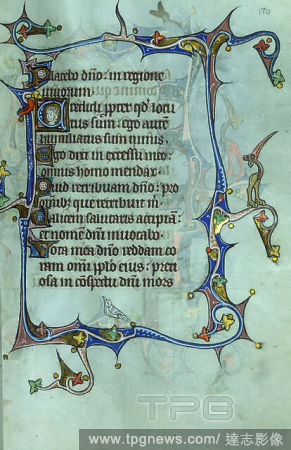 170
Placebo dño: in regione
uiuorum
Credidi propter qd locu
tus sum: ego autẽ
humiliatus sum nimis
Ego dixi in excessu meo:
omnis homo mendax
Quid retribuam dño: pro
omĩbȝ que retribuit m̃
Calicem salutaris accipiã:
et nomẽ dñi inuocabo
Vota mea dño reddam co
ram omĩ pplo eius: preci
osa in cõspectu dñi mors
TPG
www.tpgnews.com/ 達志影像